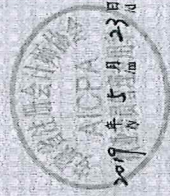 安徽省注册会计师协会
AICPA
2019年5月23日